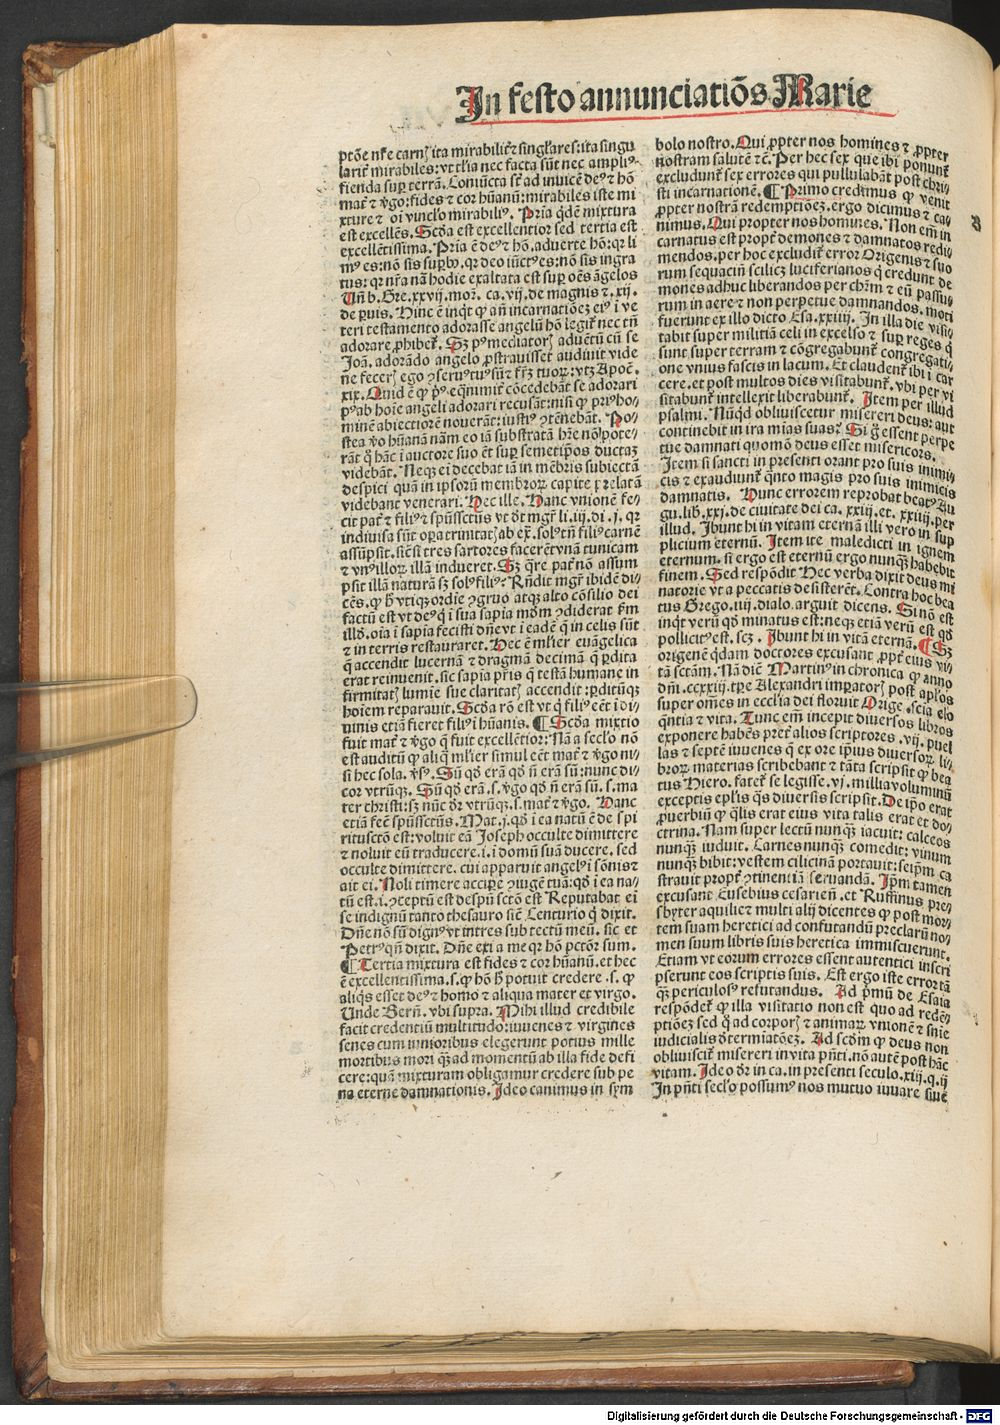 In festo annunciatiōs Marie
ptōe nr̄e carnꝭ ita mirabilit᷑ ⁊ singl'ares: ita singu
larit᷑ mirabiles: vt tl'ia nec facta sūt nec ampliꝰ
fienda suꝑ terrā. Coniūcta sē ad inuicē deꝰ ⁊ hō
mat᷑ ⁊ v̄go: fides ⁊ cor hūanū: mirabiles iste mi
xture ⁊ oi vincl'o mirabiliꝰ. Pria q̄dē mixtura
est excellēs. Scd̄a est excellentior sed tertia est
excellētissima. Pria ē deꝰ ⁊ hō. aduerte hō: qr li
mꝰ es: nō sis suꝑbꝰ. qr deo iūctꝰ es: nō sis ingra
tus: qr nr̄a nā hodie exaltata est suꝑ oēs āgelos
Uñ b. Gre. xxvij. mor̄. ca. vij. de magnis ⁊. xij.
de ꝑuis. Hinc ē inqt ꝙ añ incarnatiōez eiꝰ i ve
teri testamento adorasse angelū hō legit᷑ nec tñ
adorare ꝓhibet᷑. Sꝫ pꝰ mediatorꝭ aduētū cū se
Joā. adorādo angelo ꝓstrauisset audiuit vide
ne fecerꝭ ego ꝯseruꝰ tuꝰ sū ⁊ fr̄ꝫ tuoꝝ: vtꝫ Apoc̄.
xix. Quid ē ꝙ pꝰ eqnimit᷑ cōcedebāt se adorari
pꝰ ab hoīe angeli adorari recusāt: nisi ꝙ priꝰ ho
minē abiectiorē nouerāt: iustiꝰ ꝯtēnebāt. Po
stea v̄o hūanā nām eo iā substratā hr̄e nō pote
rāt ꝙ hāc i auctore suo ēt suꝑ semetip̄os ductaꝫ
videbāt. Neqꝫ ei decebat iā in mēbris subiectā
despici quā in ipsoꝝ membroꝝ capite ꝓrelatā
videbant venerari. Hec ille. Hanc vnionē fe
cit pat᷑ ⁊ filiꝰ ⁊ spūssctūs vt d̄t mgr̄ li. iij. di. j. qr
indiuisa sūt oꝑa trinitatꝭ ab ex̄. solꝰ tñ filiꝰ carnē
assūpsit. sic̄ si tres sartores facerēt vnā tunicam
⁊ vnꝰ illoꝝ illā indueret. Sꝫ q̄re pat᷑ nō assum
psit illā naturā sꝫ solꝰ filiꝰ: Rñdit mgr̄ ibidē di
cēs. ꝙ h̄ vtiqꝫ ordīe ꝯgruo atqꝫ alto cōsilio dei
factū est vt deꝰ q̄ i sua sapīa mōm ꝯdiderat ẜm
illđ. oīa i sapīa fecisti dñe vt i eadē q̄ in celis sūt
⁊ in terris restauraret. Hec ē ml'ier euāgelica
q̄ accendit lucernā ⁊ dragmā decimā q̄ ꝑdita
erat reinuenit. sic sapīa pr̄is q̄ testā humane in
firmitatꝭ lumīe sue claritatꝭ accendit: ꝑditūqꝫ
hoīem reparauit. Scd̄a rō est vt q̄ filiꝰ eēt i di
uinis etiā fieret filiꝰ hūanis. ¶ Scd̄a mixtio
fuit mat᷑ ⁊ v̄go q̄ fuit excellētior: Nā a secl'o nō
est auditū ꝙ aliq̄ ml'ier simul eēt mat᷑ ⁊ v̄go ni
si hec sola. v̄sꝰ. Sū qđ erā qđ ñ erā sū: nunc di
cor vtrūqꝫ. Sū qđ erā. s. v̄go qđ ñ erā sū. s. ma
ter christi: sꝫ nūc d̄r vtrūqꝫ. s. mat᷑ ⁊ v̄go. Hanc
etiā fec̄ spūssctūs. Mat. j. qđ i ea natū ē de spi
ritusctō est: voluit eā Joseph occulte dimittere
⁊ noluit eū traducere. i. i domū suā ducere. sed
occulte dimittere. cui apparuit angelꝰ i sōnis ⁊
ait ei. Noli timere acciꝑe ꝯiugē tuā: qđ i ea na
tū est. i. ꝯceptū est de spū sctō est Reputabat ei
se indignū tanto thesauro sic̄ Centurio q̄ dixit.
Dñe nō sū dignꝰ vt intres sub tectū meū. sic et
Petrꝰ qñ dixit. Dñe exi a me qr hō pctōr sum.
¶ Tertia mixtura est fides ⁊ cor hūanū. et hec
ē excellentissima. s. ꝙ hō h̄ potuit credere. s. ꝙ
aliqs esset deꝰ ⁊ homo ⁊ aliqua mater et virgo.
Unde Berñ. vbi supra. Mihi illud credibile
facit credentiū multitudo: iuuenes ⁊ virgines
senes cum iunioribus elegerunt potius mille
mortibus mori qꝫ ad momentū ab illa fide defi
cere: quā mixturam obligamur credere sub pe
na eterne damnationis. Ideo canimus in sym
bolo nostro. Qui ꝓpter nos homines ⁊ ꝓpter
nostram salutē ⁊c̄. Per hec sex que ibi ponunt᷑
excludunt᷑ sex errores qui pullulabāt post chri
sti incarnationē. ¶ Primo credimus ꝙ venit
ꝓpter nostrā redemptiōeꝫ. ergo dicimus ⁊ ca
nimus. Qui propter nos homines. Non em̄ in
carnatus est propt᷑ demones ⁊ damnatos redi
mendos. per hoc excludit᷑ error Origenis ⁊ suo
rum sequaciū scilicꝫ luciferianos q̄ credunt de
mones adhuc liberandos per chr̄m ⁊ eū passu
rum in aere ⁊ non perpetue damnandos. moti
fuerunt ex illo dicto Esa. xxiiij. In illa die visi
tabit super militiā celi in excelso ⁊ suꝑ reges q̄
sunt super terram ⁊ cōgregabunt᷑ congregati
one vnius fascis in lacum. Et claudent᷑ ibi i car
cere. et post multos dies visitabunt᷑. vbi per vi
sitabunt᷑ intellexit liberabunt᷑. Item per illud
psalmi. Nūqđ obliuiscetur misereri deus: aut
continebit in ira mias suas? Si ḡ essent perpe
tue damnati quomō deus esset misericors.
Item si sancti in presenti orant pro suis inimi
cis ⁊ exaudiunt᷑ q̄nto magis pro suis inimicis
damnatis. Hunc errorem reprobat beatꝰ Au
gu. lib. xxj. de ciuitate dei ca. xxiij. et. xxiiij. per
illud. Ibunt hi in vitam eternā illi vero in sup
plicium eternū. Item ite maledicti in ignem
eternum. si ergo est eternū ergo nunqꝫ habebit
finem. Sed respōdit Hec verba dixit deus mi
natorie vt a peccatis desisterēt. Contra hoc bea
tus Grego. iiij. dialo. arguit dicens. Si nō est
inqt verū qđ minatus est: neqꝫ etiā verū est qđ
pollicitꝰ est. scꝫ. Ibunt hi in vitā eternā. ¶ Sꝫ
origenē q̄dam doctores excusant ꝓpt᷑ eius vi
tā sctām. Nā dic̄ Martinꝰ in chronica ꝙ anno
dñi. ccxxiij. tꝑe Alexandri imꝑatorꝭ post apl'os
super om̄es in eccl'ia dei floruit Orige. scīa elo
q̄ntia ⁊ vita. Tunc em̄ incepit diuersos libros
exponere habēs pret᷑ alios scriptores. vij. puel
las ⁊ septē iuuenes q̄ ex ore ip̄ius diuersoꝝ li
broꝝ materias scribebant ⁊ tāta scripsit ꝙ bea
tus Hiero. fatet᷑ se legisse. vj. millia voluminū
exceptis epl'is q̄s diuersis scripsit. De ip̄o erat
ꝓuerbiū ꝙ qlis erat eius vita talis erat et do
ctrina. Nam super lectū nunqꝫ iacuit: calceos
nunqꝫ iuduit. Carnes nunqꝫ comedit: vinum
nunqꝫ bibit: vestem cilicinā portauit: seip̄m ca
strauit propt᷑ ꝯtinentiā seruandā. Ip̄m tamen
excusant Eusebius cesarieñ. et Ruffinus pres
byter aquilie ⁊ multi alij dicentes ꝙ post mor
tem suam heretici ad confutandū preclarū no
men suum libris suis heretica immiscuerunt.
Etiam vt eorum errores essent autentici inscri
pserunt eos scriptis suis. Est ergo iste error tā
qꝫ periculosꝰ refutandus. Ad p̄mū de Esaia
respōdet᷑ ꝙ illa visitatio non est quo ad redē
ptiōeꝫ sed q̄ ad corporꝭ ⁊ animaꝝ vnionē ⁊ snīe
iudicialis d̄termiatōeꝫ. Ad scd̄m ꝙ deus non
obliuiscit᷑ misereri in vita pn̄ti. nō autē post hāc
vitam. Ideo d̄r in ca. in presenti seculo. xiij. q. ij
In pn̄ti secl'o possumꝰ nos mutuo iuuare siue
Digitalisierung gefördert durch die Deutsche Forschungsgemeinschaft - DFG